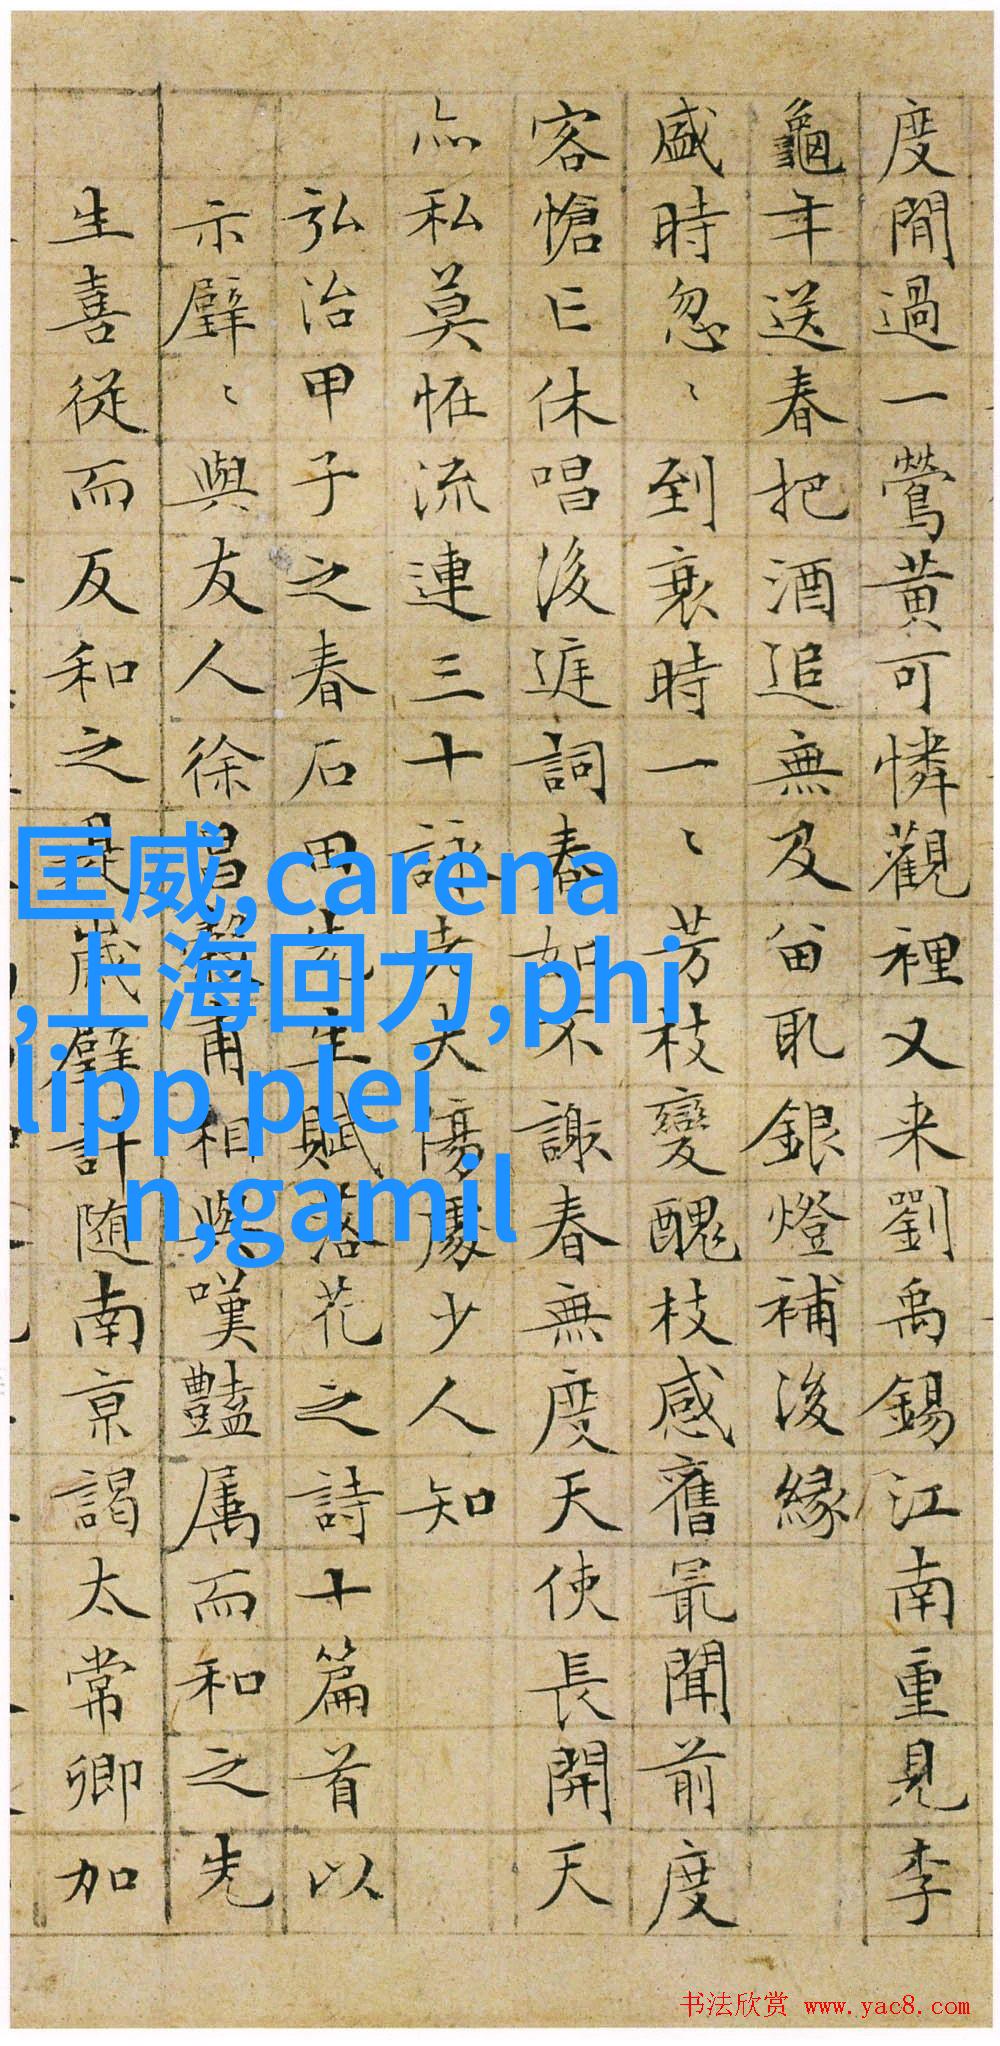 度閒過一鶯黃可憐觀裡又来劉禹錫江南重見李
龜年送春把酒追無及留取銀燈補後緣
盛時忽〻到衰時一〻芳枝變醜枝感舊最聞前度
客愴亡休唱後庭詞春如不謝春無度天使長開天
亦私莫怪流連三十詠老夫傷處少人知
弘治甲子之春石田先生賦落花之詩十篇首以
示璧〻與友人徐昌穀甫相與嘆豔属而和之先
生喜從而反和之是歲璧計随南京謁太常卿加
匡威,carena
,上海回力,phi
lipp plei
n,gamil
书法欣赏 www.yac8.com